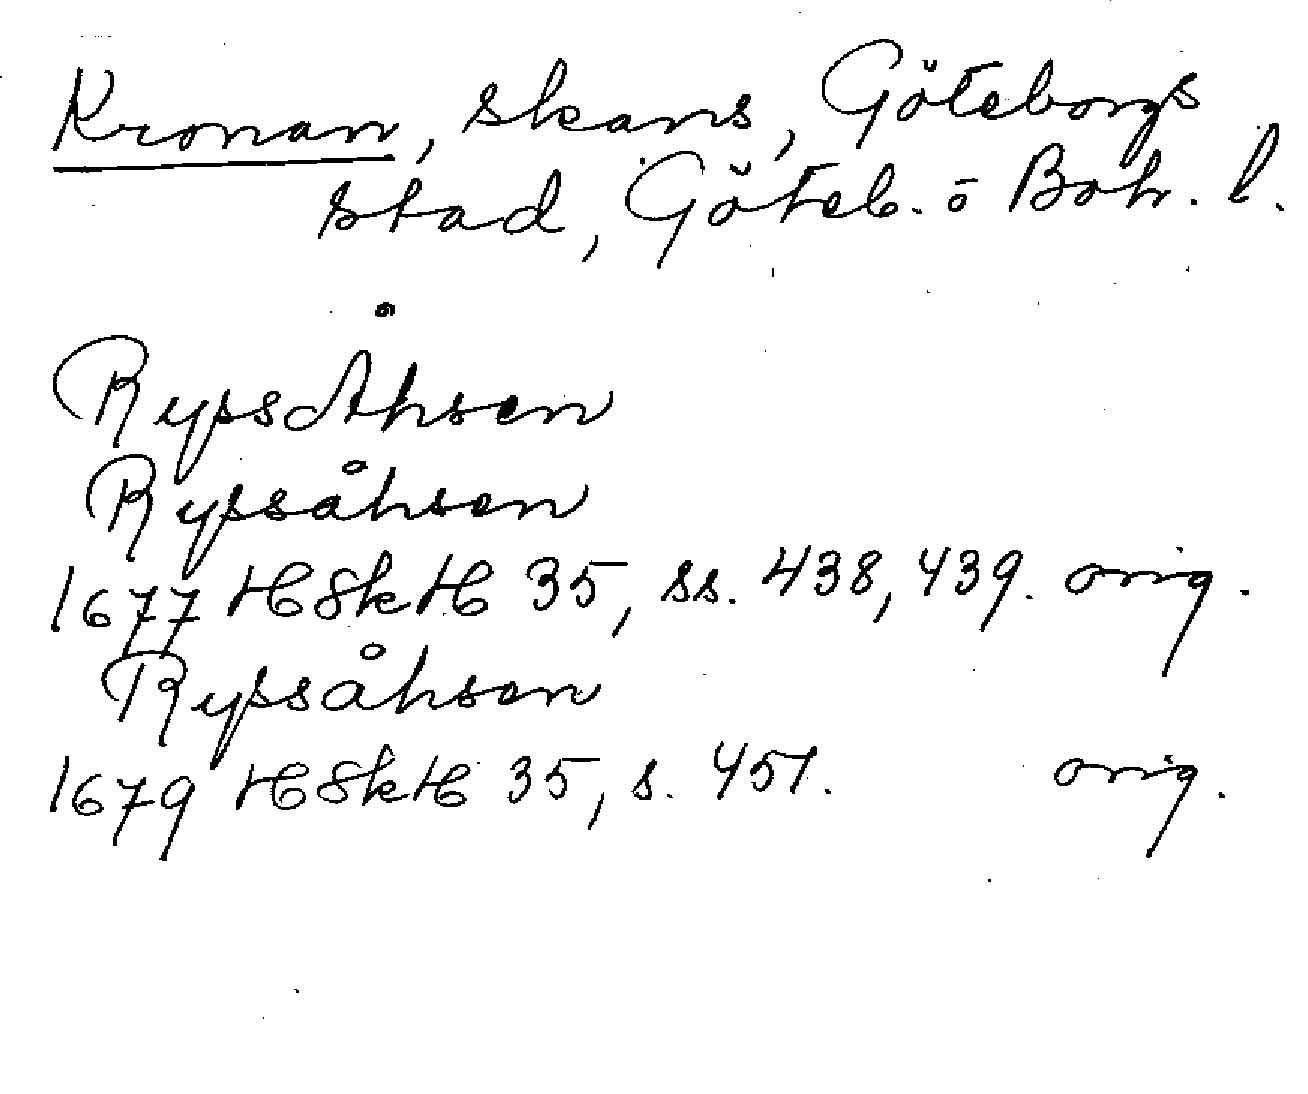 Kronan, skans, Göteborgs
stad, Göteb. o Boh. l.
RypsÅhsen
Rypsåhsen
1677 HSkH 35, ss. 438, 439. orig.
Rypsåhsen
1679 HSkH 35, s. 451. orig.